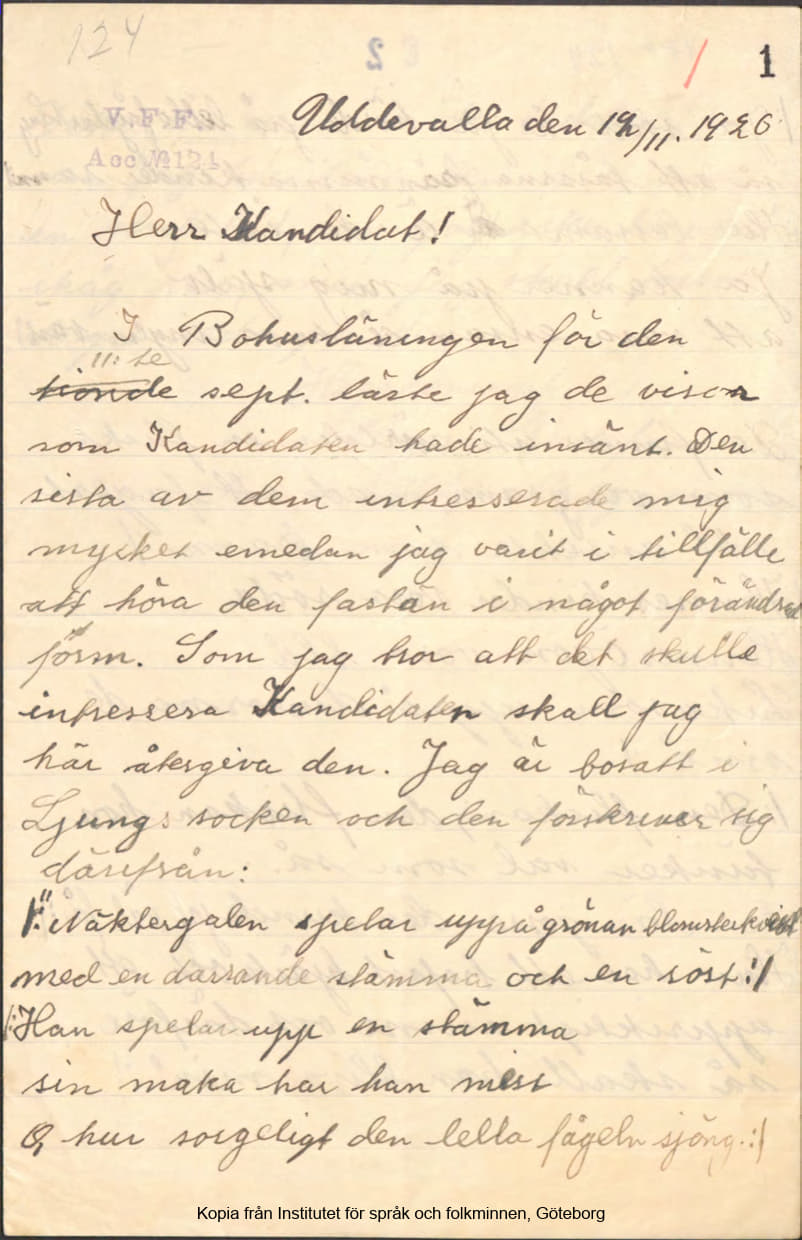 124
1
V. F. F.
Acc № 124
Uddevalla den 19/11. 1926
Herr Kandidat!
I Bohusläningen för den
11:te
tionde sept. läste jag de visor
som Kandidaten hade insänt. Den
sista av dem intresserade mig
mycket emedan jag varit i tillfälle
att höra den fastän i något förändrad
form. Som jag tror att det skulle
intressera Kandidaten skall jag
här återgiva den. Jag är bosatt i
Ljungs socken och den förskriver sig
därifrån:
/:"Näktergalen spelar uppå grönan blomsterkvist
med en darrande stämma och en röst:/
/:Han spelar upp en stämma
sin maka har han mist
O, hur sorgeligt den lella fågeln sjöng.:/
Kopia från Institutet för språk och folkminnen, Göteborg